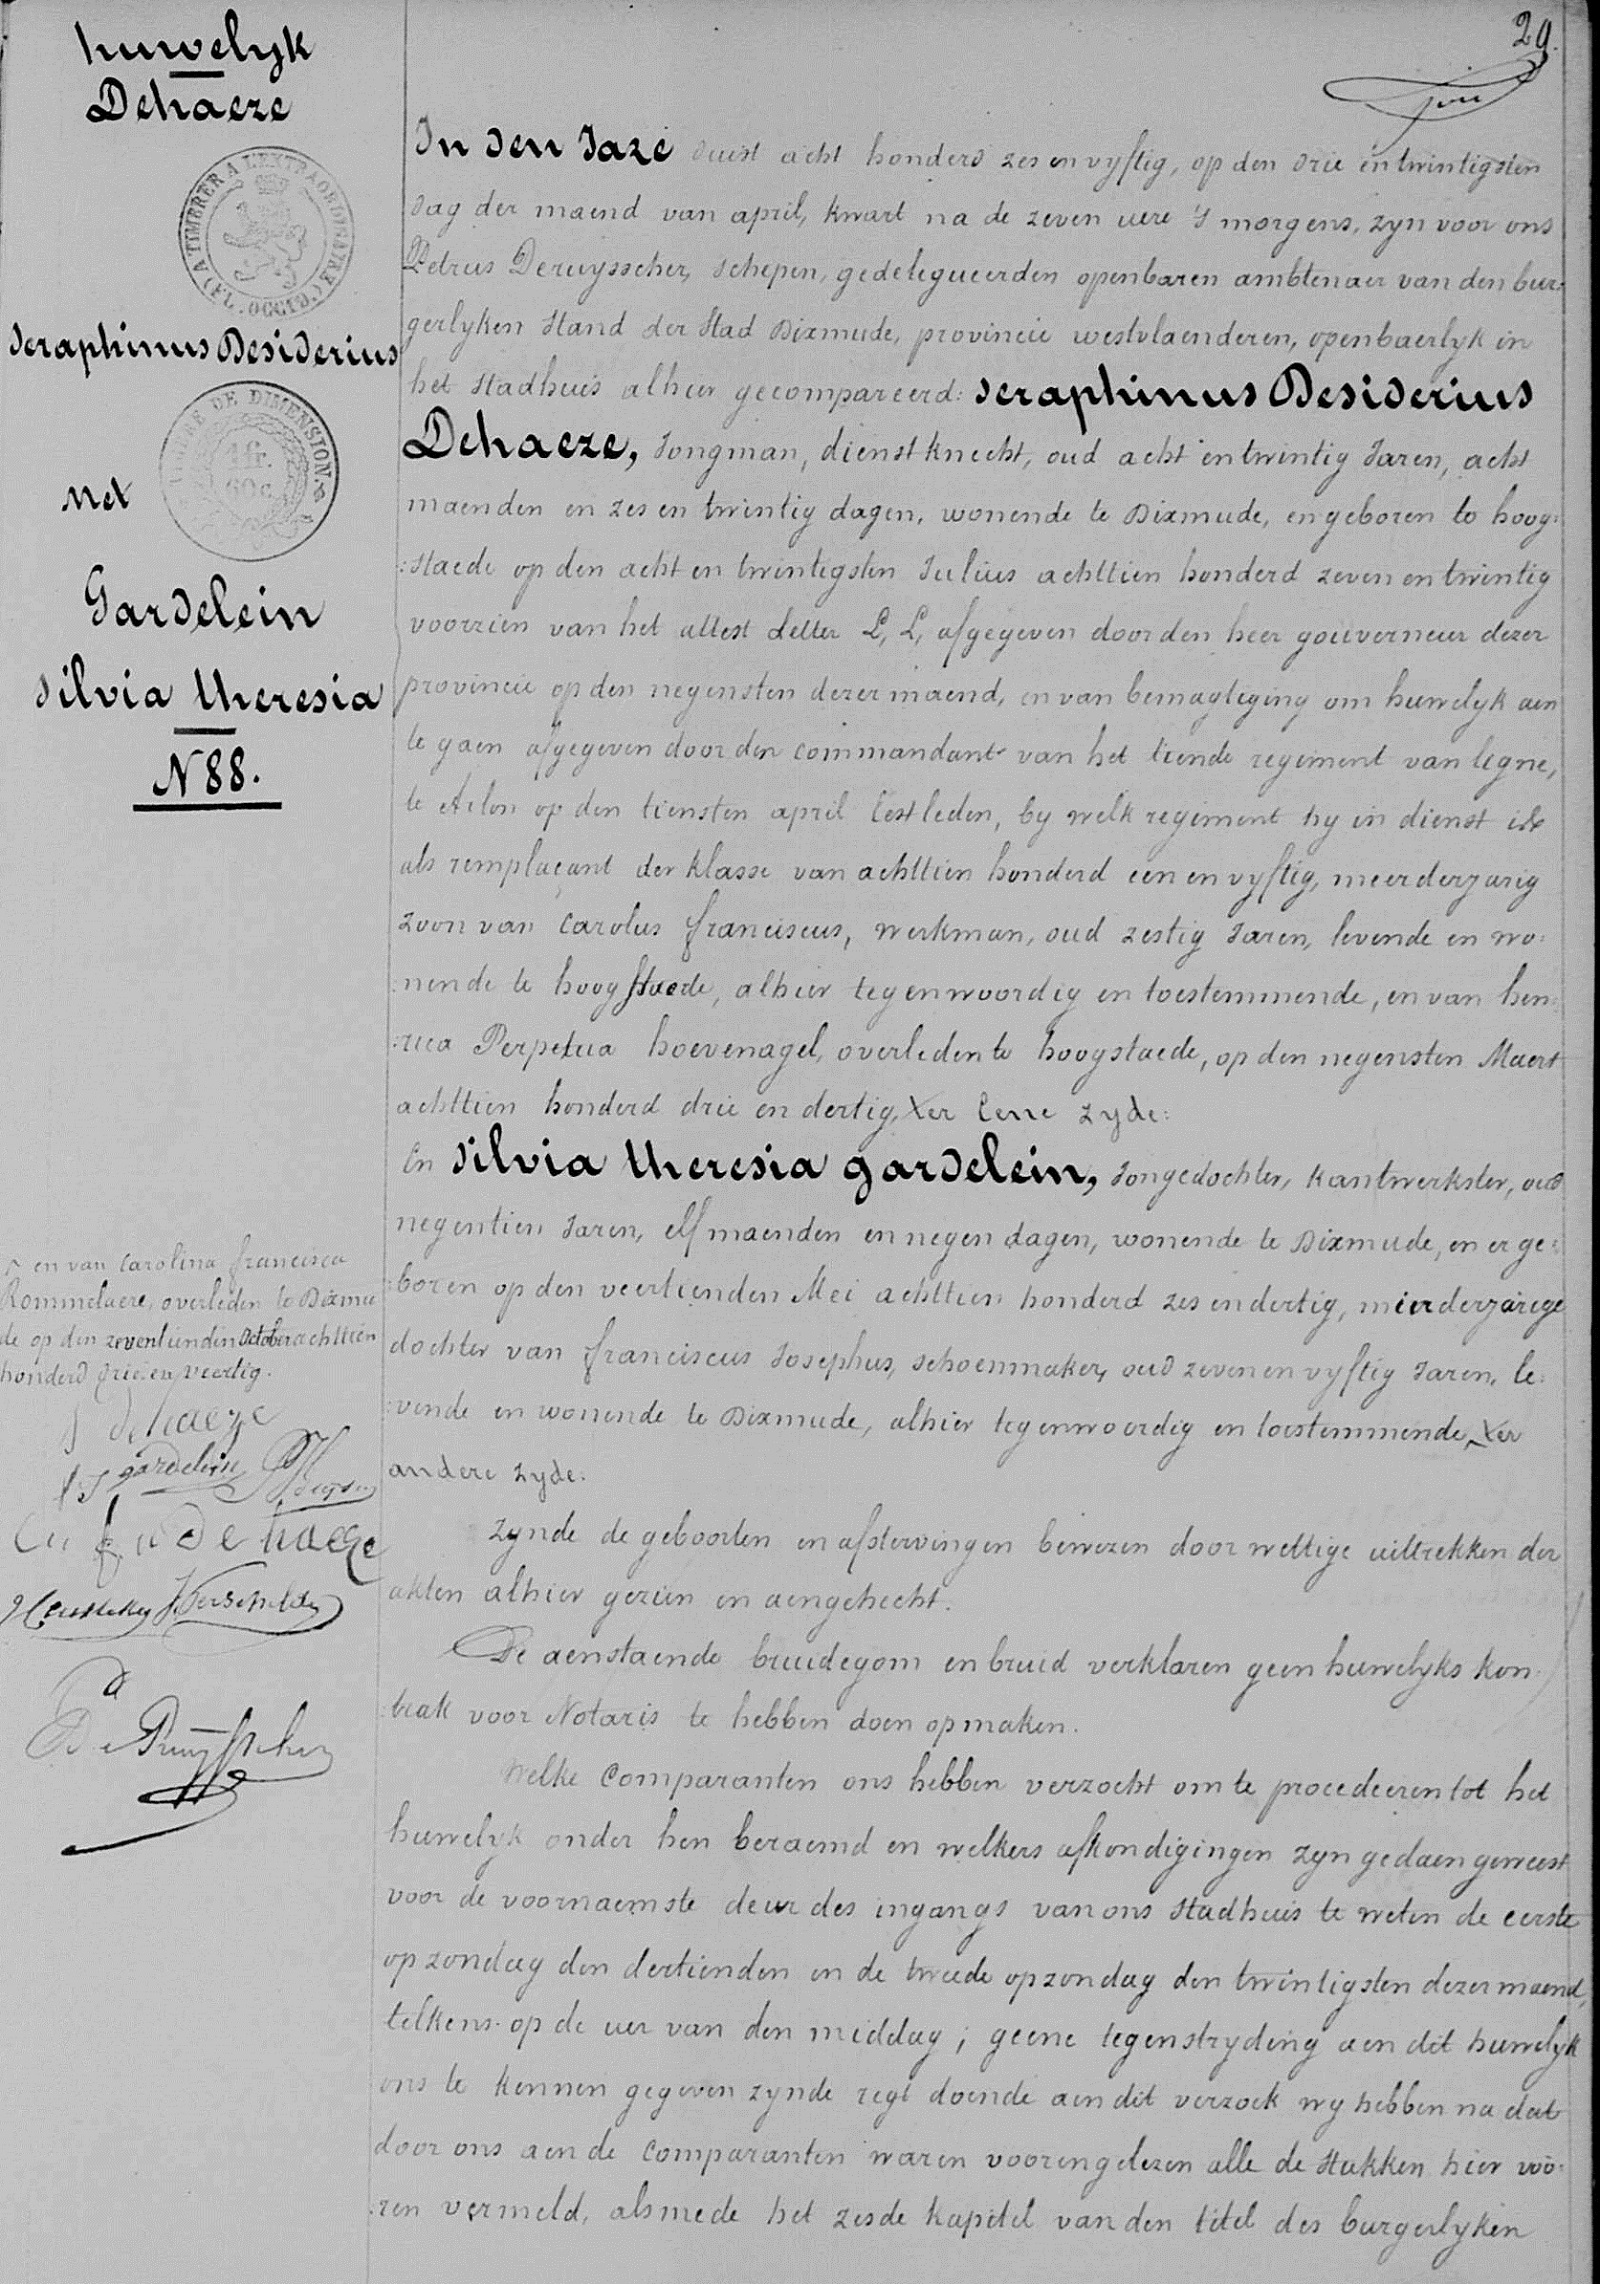 29.
huwelyk
Dehaeze
A TIMBRER A L'EXTRAORDINAIRE (FL. OCCID.)
Seraphinus Desiderius
TIMBRE DE DIMENSION.
1 fr.
60 c.
Met
Gardelein
Silvia theresia
N 88.
In den Jare duist acht honderd zes en vyftig, op den drie en twintigsten
dag der maend van april, kwart na de zeven uere 's morgens, zyn voor ons
Petrus Deruysscher, schepen, gedelegueerden openbaren ambtenaer van den bur:
gerlyken Stand der Stad Dixmude, provincie westvlaenderen, openbaerlyk in
het Stadhuis alhier gecompareerd: Seraphinus Desiderius
Dehaeze, Jongman, dienstknecht, oud acht en twintig Jaren, acht
maenden en zes en twintig dagen, wonende te Dixmude, en geboren te hoog:
:staede op den acht en twintigsten Julius achttien honderd zeven en twintig
voorzien van het attest Letter L, L, afgegeven door den heer gouverneur dezer
provincie op den negensten dezer maend, en van bemagtiging om huwelyk aen
te gaen afgegeven door den commandant van het tiende regiment van legne,
te Arlon op den tiensten april lestleden, by welk regiment hy in dienst is
als remplaçant der klasse van achttien honderd een en vyftig, meerderjarig
zoon van Carolus franciscus, werkman, oud zestig Jaren, levende en wo:
:nende te hoogstaede, alhier tegenwoordig en toestemmende, en van hen:
:rica Perpetua hoevenagel, overleden te hoogstaede, op den negensten Maert
achttien honderd drie en dertig, ter eene zyde:
En Silvia theresia gardelein, Jongedochter, kantwerkster, oud
negentien Jaren, elf maenden en negen dagen, wonende te Dixmude, en er ge:
:boren op den veertienden Mei achttien honderd zes en dertig, minderjarige
dochter van franciscus Josephus, schoenmaker, oud zeven en vyftig Jaren, le:
:vende en wonende te Dixmude, alhier tegenwoordig en toestemmende, ter
andere zyde.
Zynde de geboorten en afstervingen bewezen door wettige uittrekken der
akten alhier gezien en aengehecht.
De aenstaende bruidegom en bruid verklaren geen huwelyks kon:
:trak voor Notaris te hebben doen opmaken.
Welke Comparanten ons hebben verzocht om te procedeeren tot het
huwelyk onder hen beraemd en welkers afkondigingen zyn gedaen geweest
voor de voornaemste deur des ingangs van ons Stadhuis te weten de eerste
op zondag den dertienden en de tweede op zondag den twintigsten dezer maend,
telkens op de uer van den middag; geene tegenstryding aen dit huwelyk
ons te kennen gegeven zynde regt doende aen dit verzoek wy hebben na dat
door ons aen de Comparanten waren voorengelezen alle de Stukken hier voo:
:ren vermeld, alsmede het zesde kapitel van den titel des burgerlyken
en van Carolina francisca
Rommelaere, overleden te Dixmu
de op den zeventienden October achttien
honderd drie en veertig.
S dehaeze
gardelein
Dehaeze
Verschelde
De Ruysscher